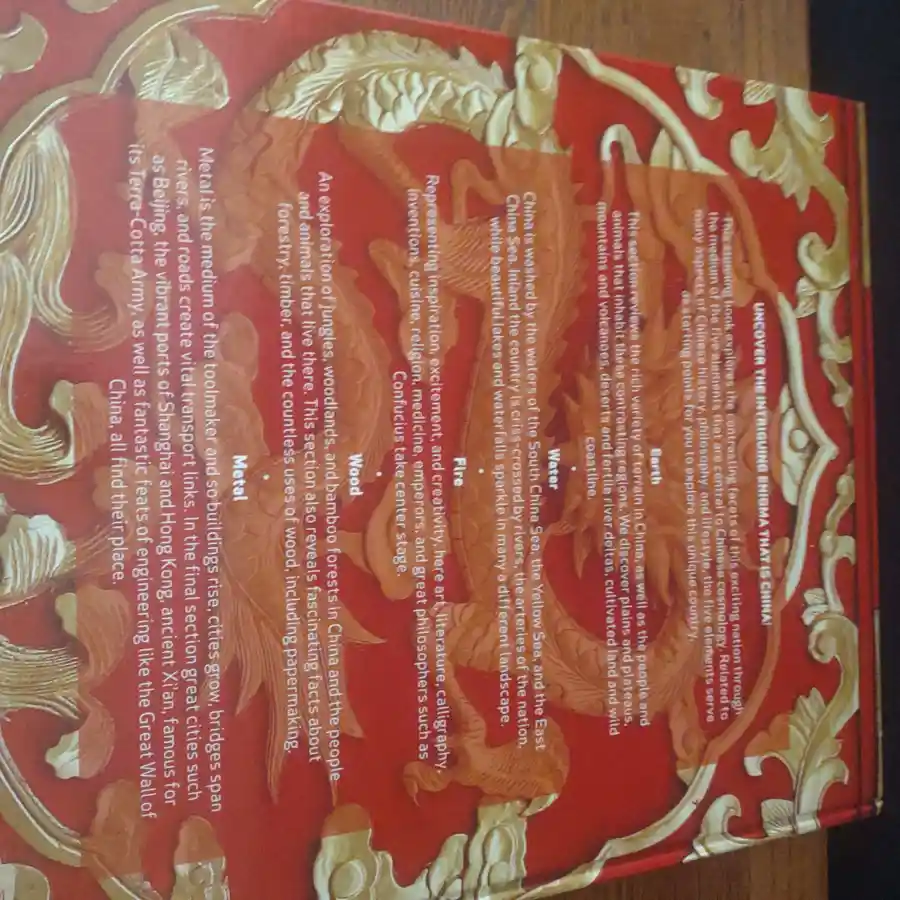 UNCOVER THE INTRIGUING ENIGMA THAT IS CHINA!
This amazing book explores the contrasting facets of this exciting nation through
the medium of the five elements that are central to Chinese cosmology. Related to
many aspects of Chinese history, philosophy and lifestyle, the five elements serve
as starting points for you to explore this unique country.
Earth
This section reviews the rich variety of terrain in China, as well as the people and
animals that inhabit these contrasting regions. We discover plains and plateaus,
mountains and volcanoes, desert and fertile river deltas, cultivated land and wild
coastline.
•
Water
China is washed by the waters of the South China Sea, the Yellow Sea, and the East
China Sea. Inland the country is criss-crossed by rivers, the arteries of the nation,
while beautiful lakes and waterfalls sparkle in many a different landscape.
•
Fire
Representing inspiration, excitement, and creativity, here art, literature, calligraphy,
inventions, cuisine, religion, medicine, emperors, and great philosophers such as
Confucius take center stage.
•
Wood
An exploration of jungles, woodlands, and bamboo forests in China and the people
and animals that live there. This section also reveals fascinating facts about
forestry, timber, and the countless uses of wood, including papermaking.
•
Metal
Metal is the medium of the toolmaker and so buildings rise, cities grow, bridges span
rivers, and roads create vital transport links. In the final section great cities such
as Beijing, the vibrant ports of Shanghai and Hong Kong, ancient Xi'an, famous for
its Terra-Cotta Army, as well as fantastic feats of engineering like the Great Wall of
China, all find their place.